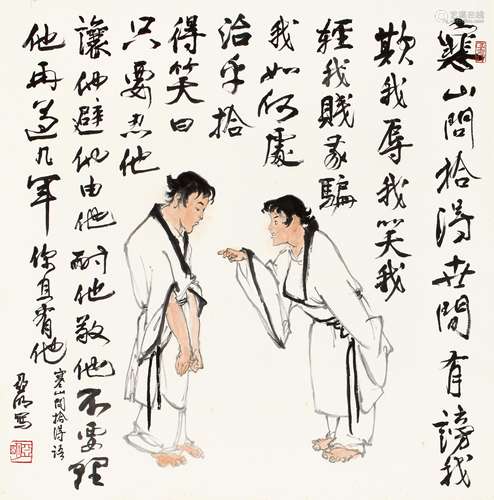 寒山問拾得世間有謗我
欺我辱我笑我
輕我賤我騙
我如何處
治乎拾
得笑曰
只要忍他
讓他避他由他耐他敬他不要理
他再過几年你且看他
寒山問拾得语
亞明寫